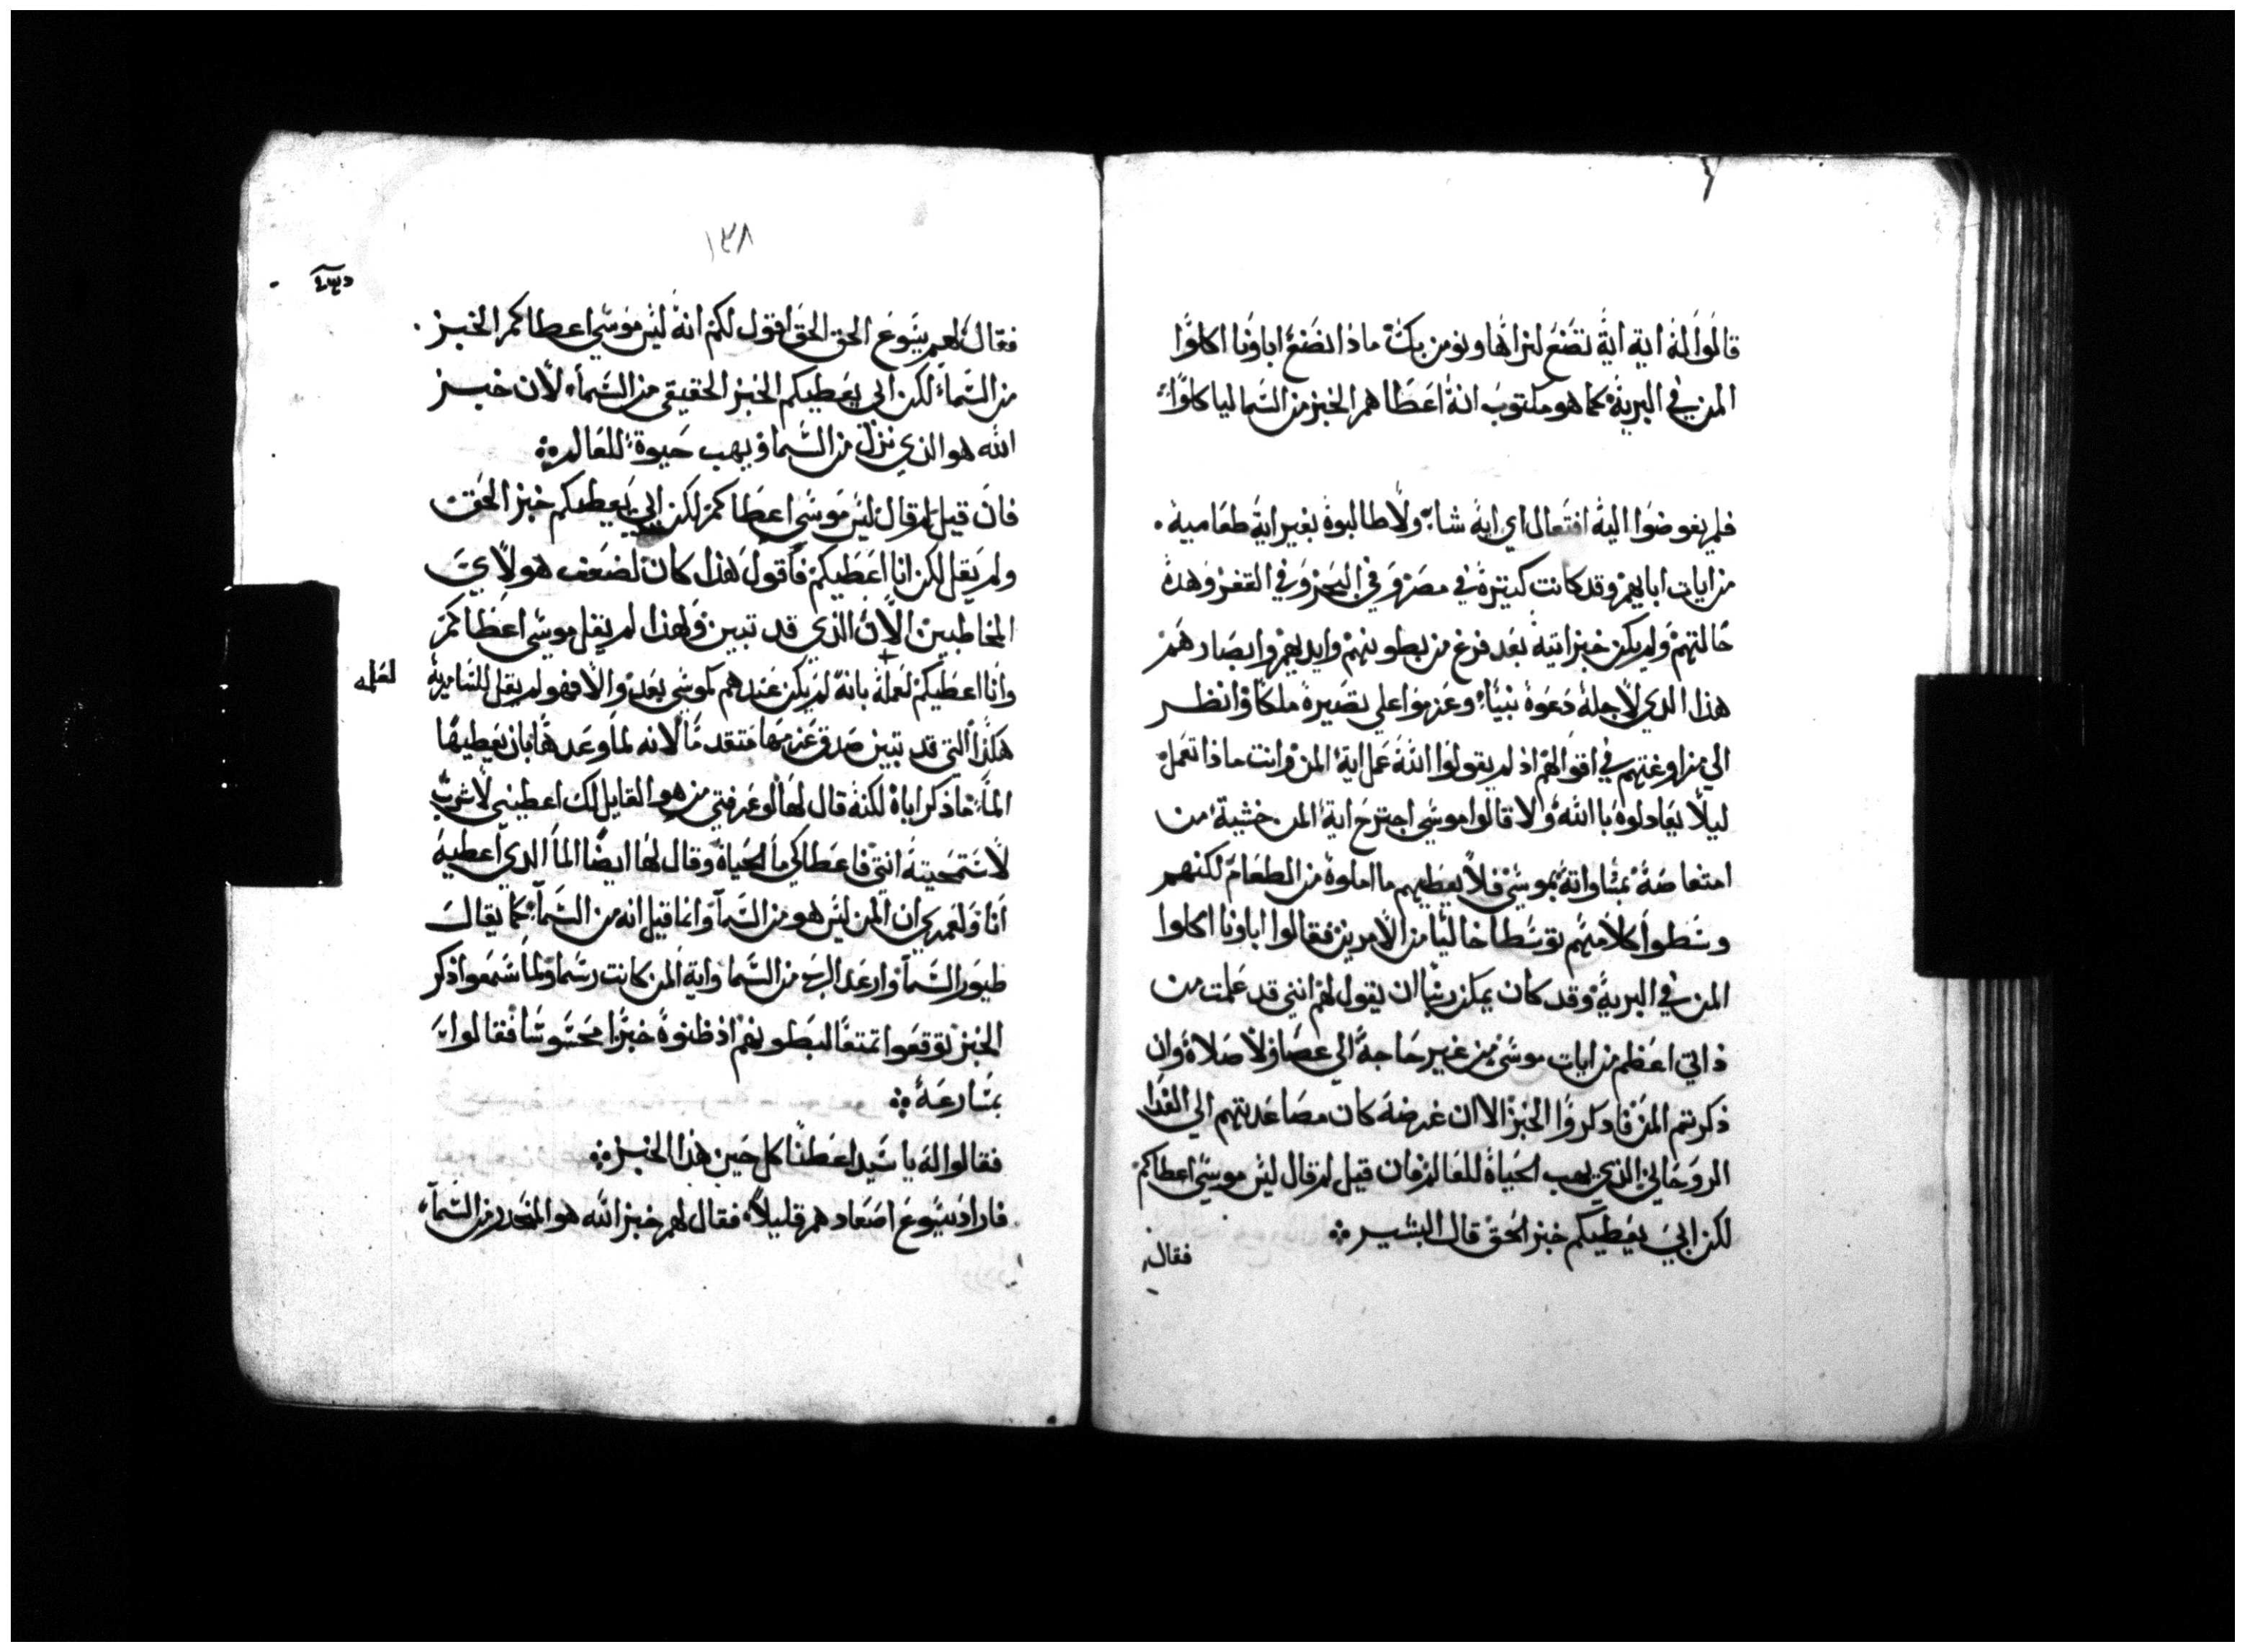 قالوا له اية اية تصنع لنراها ونومن بك ماذا تصنع اباونا اكلوا
المن في البرية كما هو مكتوب انه اعطاهم الخبز من السما لياكلوا
فلم يفوضوا اليه افتعال اي اية شاء ولا طالبوه بغير اية طعامية
من ايات ابايهم وقد كانت كثيرة في مصر وفي البحر وفي القفر وهذه
حالتهم ولم يكن خبز اتيه بعد فرغ من بطونهم وايديهم وابصارهم
هذا الدي لاجله دعوه نبيا وعزموا على تصيره ملكا وانظر
الي مراوغتهم في اقوالهم اذ لم يقولوا الله عمل اية المن وانت ماذا تعمل
ليلا يعادلوه باالله ولا قالوا موسي اجترح اية المن خشية من
امتعاضه بمساواته بموسي فلا يعطيهم ما املوه من الطعام لكنهم
وسطوا كلامهم توسطا خاليا من الامرين فقالوا اباونا اكلوا
المن في البرية وقد كان يمكن ربنا ان يقول لهم انني قد عملت من
ذاتي اعظم من ايات موسي من غير حاجة الي عصا ولا صلاة وان
ذكرتم المن فادكروا الخبز الا ان غرضه كان مصاعدتهم الي الغدا
الروحاني الذي يهب الحياة للعالم فان قيل لم قال ليس موسي اعطاكم
لكن ابي يعطيكم خبز الحق قال البشير
فقال
١٣٨
فقال لهم يسوع الحق الحق اقول لكم انه ليس موسي اعطاكم الخبز
من السماء لكن ابي يعطيكم الخبز الحقيقي من السماء لان خبز
الله هو الذي نزل من السما ويهب حيوة للعالم
فان قيل لم قال ليس موسي اعطاكم لكن ابي يعطيكم خبز الحق
ولم يقل لكن انا اعطيكم فاقول هذا كان لضعف هولاي
المخاطبين الان الذي قد تبين ولهذا لم يقل موسي اعطاكم
وانا اعطيكم لعمله بانه لم يكن عندهم كموسي بعد والا فهو لم يقل للسامرية
لعلمه
هكذا التي قد تبين صدق عزمها متقدما لانه لما وعدها بان يعطيها
الما ما ذكر اباه لكنه قال لها لو عرفتي من هو القايل لك اعطيني لاشرب
لاستمحيته انتي فاعطاكي ما الحياة وقال لها ايضا الما الدي اعطيه
انا ولعمري ان المن ليس هو من السما وانما قيل انه من السماء كما يقال
طيور السما وارعد الرب من السما واية المن كانت رسما ولما سمعوا ذكر
الخبز توقعوا تمتعا لبطونهم اذ ظنوه خبزا محسوسا فقالوا
بمسارعة
فقالوا له يا سيد اعطنا كل حين هذا الخبز
فاراد يسوع اصعادهم قليلا فقال لهم خبز الله هو المنحدر من السماء